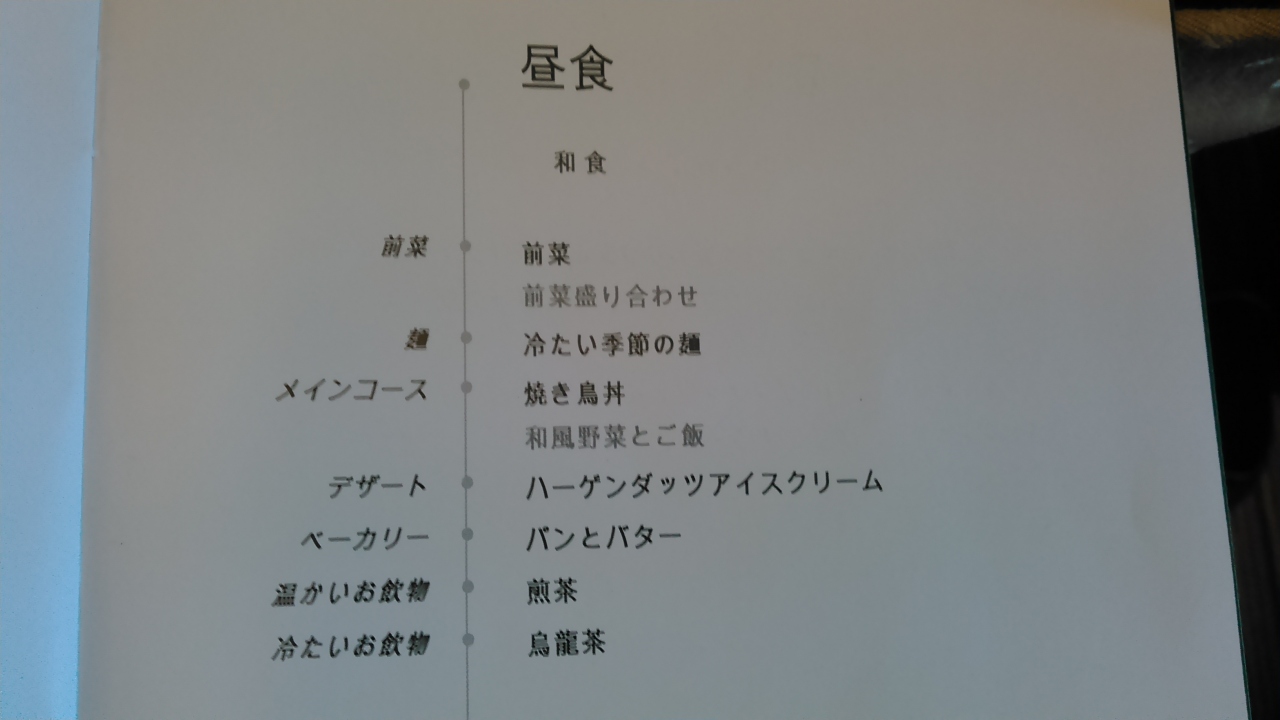 昼食
和食
前菜 前菜
前菜盛り合わせ
麺 冷たい季節の麺
メインコース 焼き鳥丼
和風野菜とご飯
デザート ハーゲンダッツアイスクリーム
ベーカリー パンとバター
温かいお飲物 煎茶
冷たいお飲物 烏龍茶